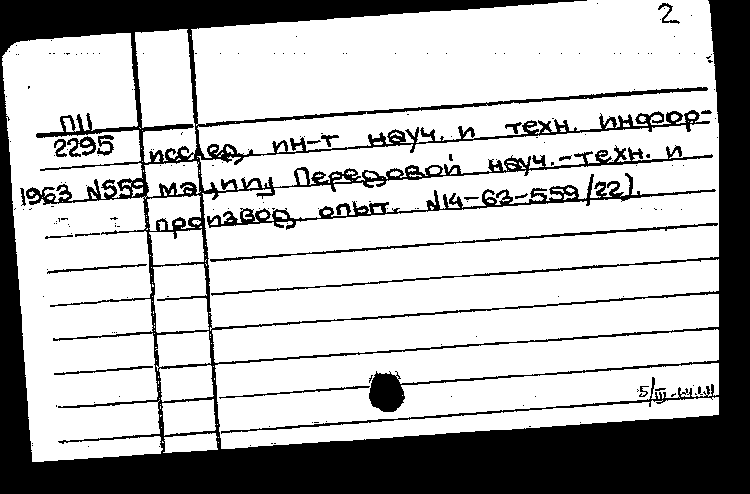 2
П11
2295
1963 N559
исслед. ин-т науч. и техн. инфор-
мации Передовой науч.-техн. и
производ. опыт. N14-63-559/22).